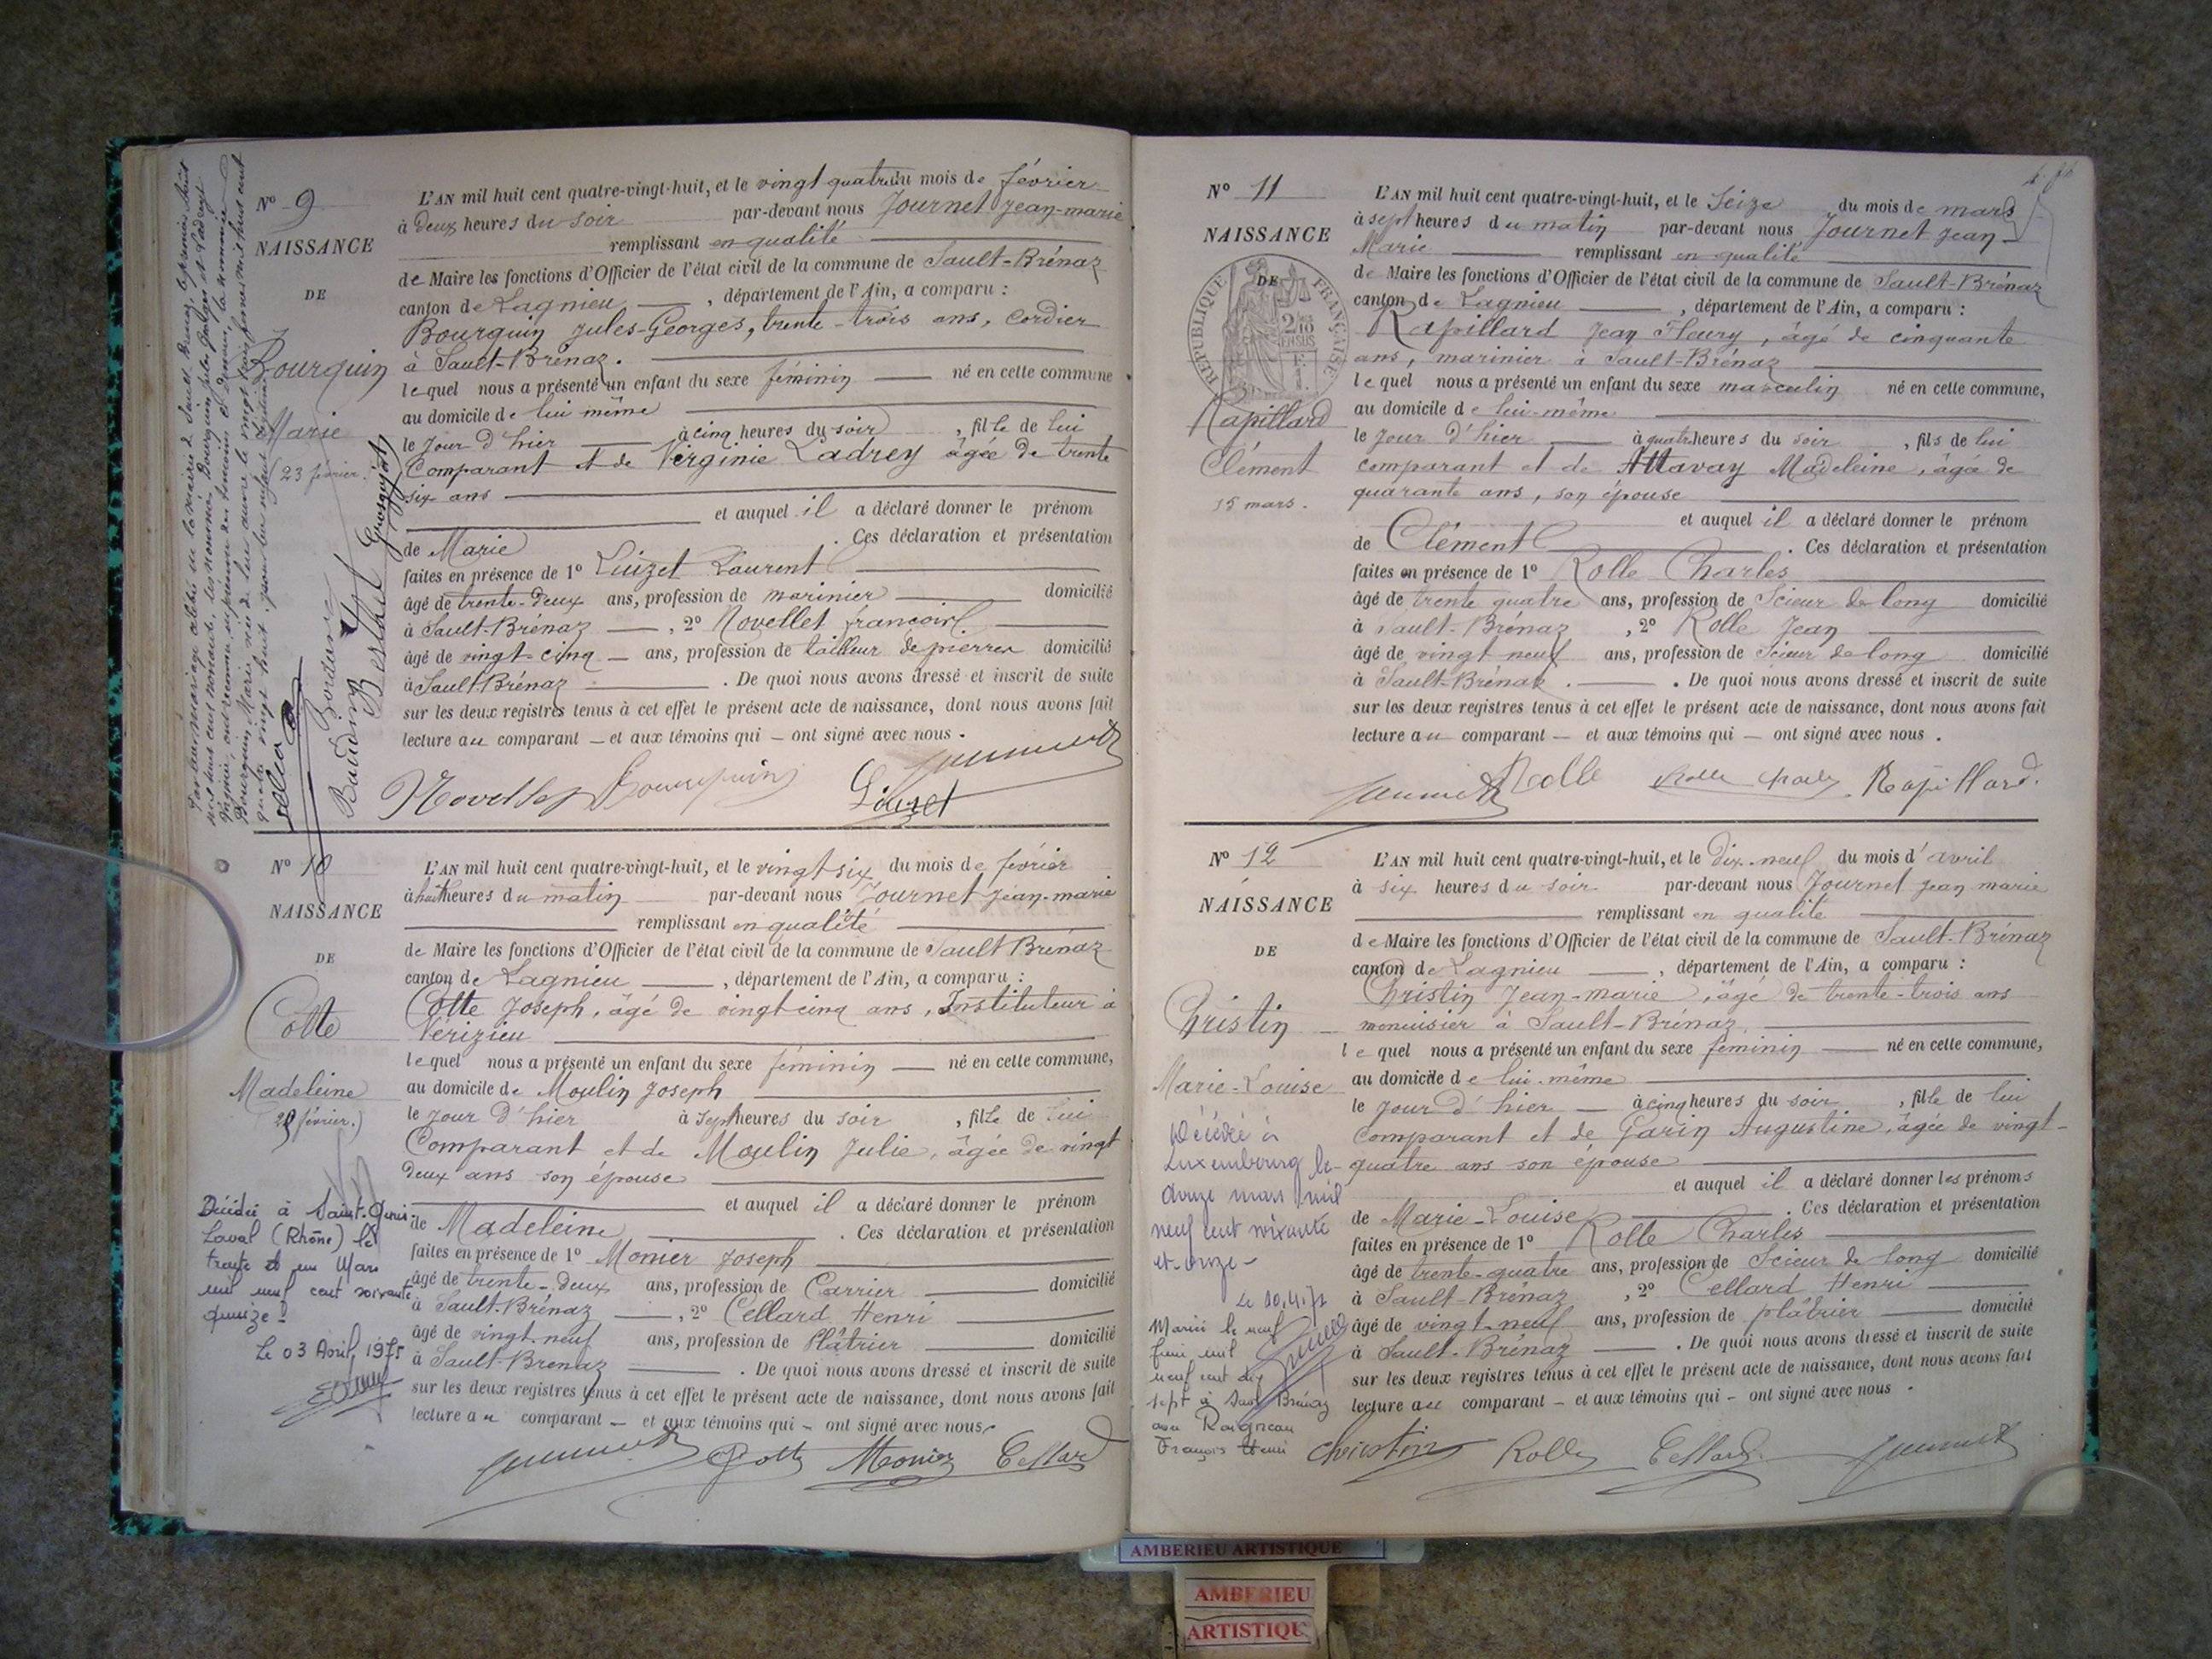 Nº 9
NAISSANCE
DE
Bourguin
Marie
(23 février.)
L'AN mil huit cent quatre-vingt-huit, et le vingt quatre du mois de février
à deux heures du soir par-devant nous Journet Jean-marie
remplissant en qualité
de Maire les fonctions d'Officier de l'état civil de la commune de Sault-Brénaz
canton de Lagnieu, département de l'Ain, a comparu :
Bourguin Jules-Georges, trente-trois ans, Cordier
à Sault-Brénaz.
lequel nous a présenté un enfant du sexe féminin né en cette commune
au domicile de lui même
le jour d'hier à cinq heures du soir, fille de lui
Comparant et de Verginie Ladrey âgée de trente
six ans
et auquel il a déclaré donner le prénom
de Marie. Ces déclaration et présentation
faites en présence de 1º Luizet Laurent
âgé de trente-deux ans, profession de marinier domicilié
à Sault-Brénaz, 2º Novellet françois
âgé de vingt-cinq ans, profession de tailleur de pierres domicilié
à Sault-Brénaz. De quoi nous avons dressé et inscrit de suite
sur les deux registres tenus à cet effet le présent acte de naissance, dont nous avons fait
lecture au comparant et aux témoins qui ont signé avec nous.
Novellet Bourguin Luizet Journet
Nº 10
NAISSANCE
DE
Cotte
Madeleine
25 février.)
Décédée à Saint-Genis
Laval (Rhône) le
trente et un Mars
mil neuf cent soixante
quinze
Le 03 Avril 1975
L'AN mil huit cent quatre-vingt-huit, et le vingt six du mois de février
à huit heures du matin par-devant nous Journet Jean-marie
remplissant en qualité
de Maire les fonctions d'Officier de l'état civil de la commune de Sault Brénaz
canton de Lagnieu, département de l'Ain, a comparu :
Cotte Joseph, âgé de vingt-cinq ans, Instituteur à
Vérizieu
lequel nous a présenté un enfant du sexe féminin né en cette commune,
au domicile de Moulin Joseph
le jour d'hier à sept heures du soir, fille de lui
Comparant et de Moulin Julie, âgée de vingt
deux ans son épouse
et auquel il a déclaré donner le prénom
de Madeleine. Ces déclaration et présentation
faites en présence de 1º Monier Joseph
âgé de trente-deux ans, profession de Carrier domicilié
à Sault-Brénaz, 2º Cellard Henri
âgé de vingt-neuf ans, profession de Plâtrier domicilié
à Sault-Brenaz. De quoi nous avons dressé et inscrit de suite
sur les deux registres tenus à cet effet le présent acte de naissance, dont nous avons fait
lecture au comparant et aux témoins qui ont signé avec nous.
Journet Cotte Monier Cellard
Nº 11
NAISSANCE
DE
RÉPUBLIQUE FRANÇAISE
Rapillard
Clément
15 mars.
L'AN mil huit cent quatre-vingt-huit, et le Seize du mois de mars
à sept heures du matin par-devant nous Journet Jean-
Marie remplissant en qualité
de Maire les fonctions d'Officier de l'état civil de la commune de Sault-Brénaz
canton de Lagnieu, département de l'Ain, a comparu :
Rapillard Jean Fleury, âgé de cinquante
ans, marinier à Sault-Brénaz
lequel nous a présenté un enfant du sexe masculin né en cette commune,
au domicile de lui-même
le jour d'hier à quatre heures du soir, fils de lui
comparant et de Attavay Madeleine, âgée de
quarante ans, son épouse
et auquel il a déclaré donner le prénom
de Clément. Ces déclaration et présentation
faites en présence de 1º Rolle Charles
âgé de trente quatre ans, profession de Scieur de long domicilié
à Sault-Brénaz, 2º Rolle Jean
âgé de vingt neuf ans, profession de Scieur de long domicilié
à Sault-Brénaz. De quoi nous avons dressé et inscrit de suite
sur les deux registres tenus à cet effet le présent acte de naissance, dont nous avons fait
lecture au comparant et aux témoins qui ont signé avec nous.
Journet Rolle Rolle Charles Rapillard
Nº 12
NAISSANCE
DE
Christin
Marie-Louise
Décédée à
Luxembourg le
douze mars mil
neuf cent soixante
et onze
Marié le neuf
juin mil
neuf cent dix
sept à Sault Brénaz
avec
François Henri
L'AN mil huit cent quatre-vingt-huit, et le Dix-neuf du mois d'avril
à six heures du soir par-devant nous Journet Jean marie
remplissant en qualité
de Maire les fonctions d'Officier de l'état civil de la commune de Sault-Brénaz
canton de Lagnieu, département de l'Ain, a comparu :
Christin Jean-marie, âgé de trente-trois ans
menuisier à Sault-Brénaz,
lequel nous a présenté un enfant du sexe féminin né en cette commune,
au domicile de lui-même
le jour d'hier à cinq heures du soir, fille de lui
comparant et de Garin Augustine, âgée de vingt-
quatre ans son épouse
et auquel il a déclaré donner les prénoms
de Marie-Louise. Ces déclaration et présentation
faites en présence de 1º Rolle Charles
âgé de trente-quatre ans, profession de Scieur de long domicilié
à Sault-Brénaz, 2º Cellard Henri
âgé de vingt-neuf ans, profession de plâtrier domicilié
à Sault-Brénaz. De quoi nous avons dressé et inscrit de suite
sur les deux registres tenus à cet effet le présent acte de naissance, dont nous avons fait
lecture au comparant et aux témoins qui ont signé avec nous.
Christin Rolle Cellard Journet
AMBERIEU ARTISTIQUE
AMBERIEU
ARTISTIQUE